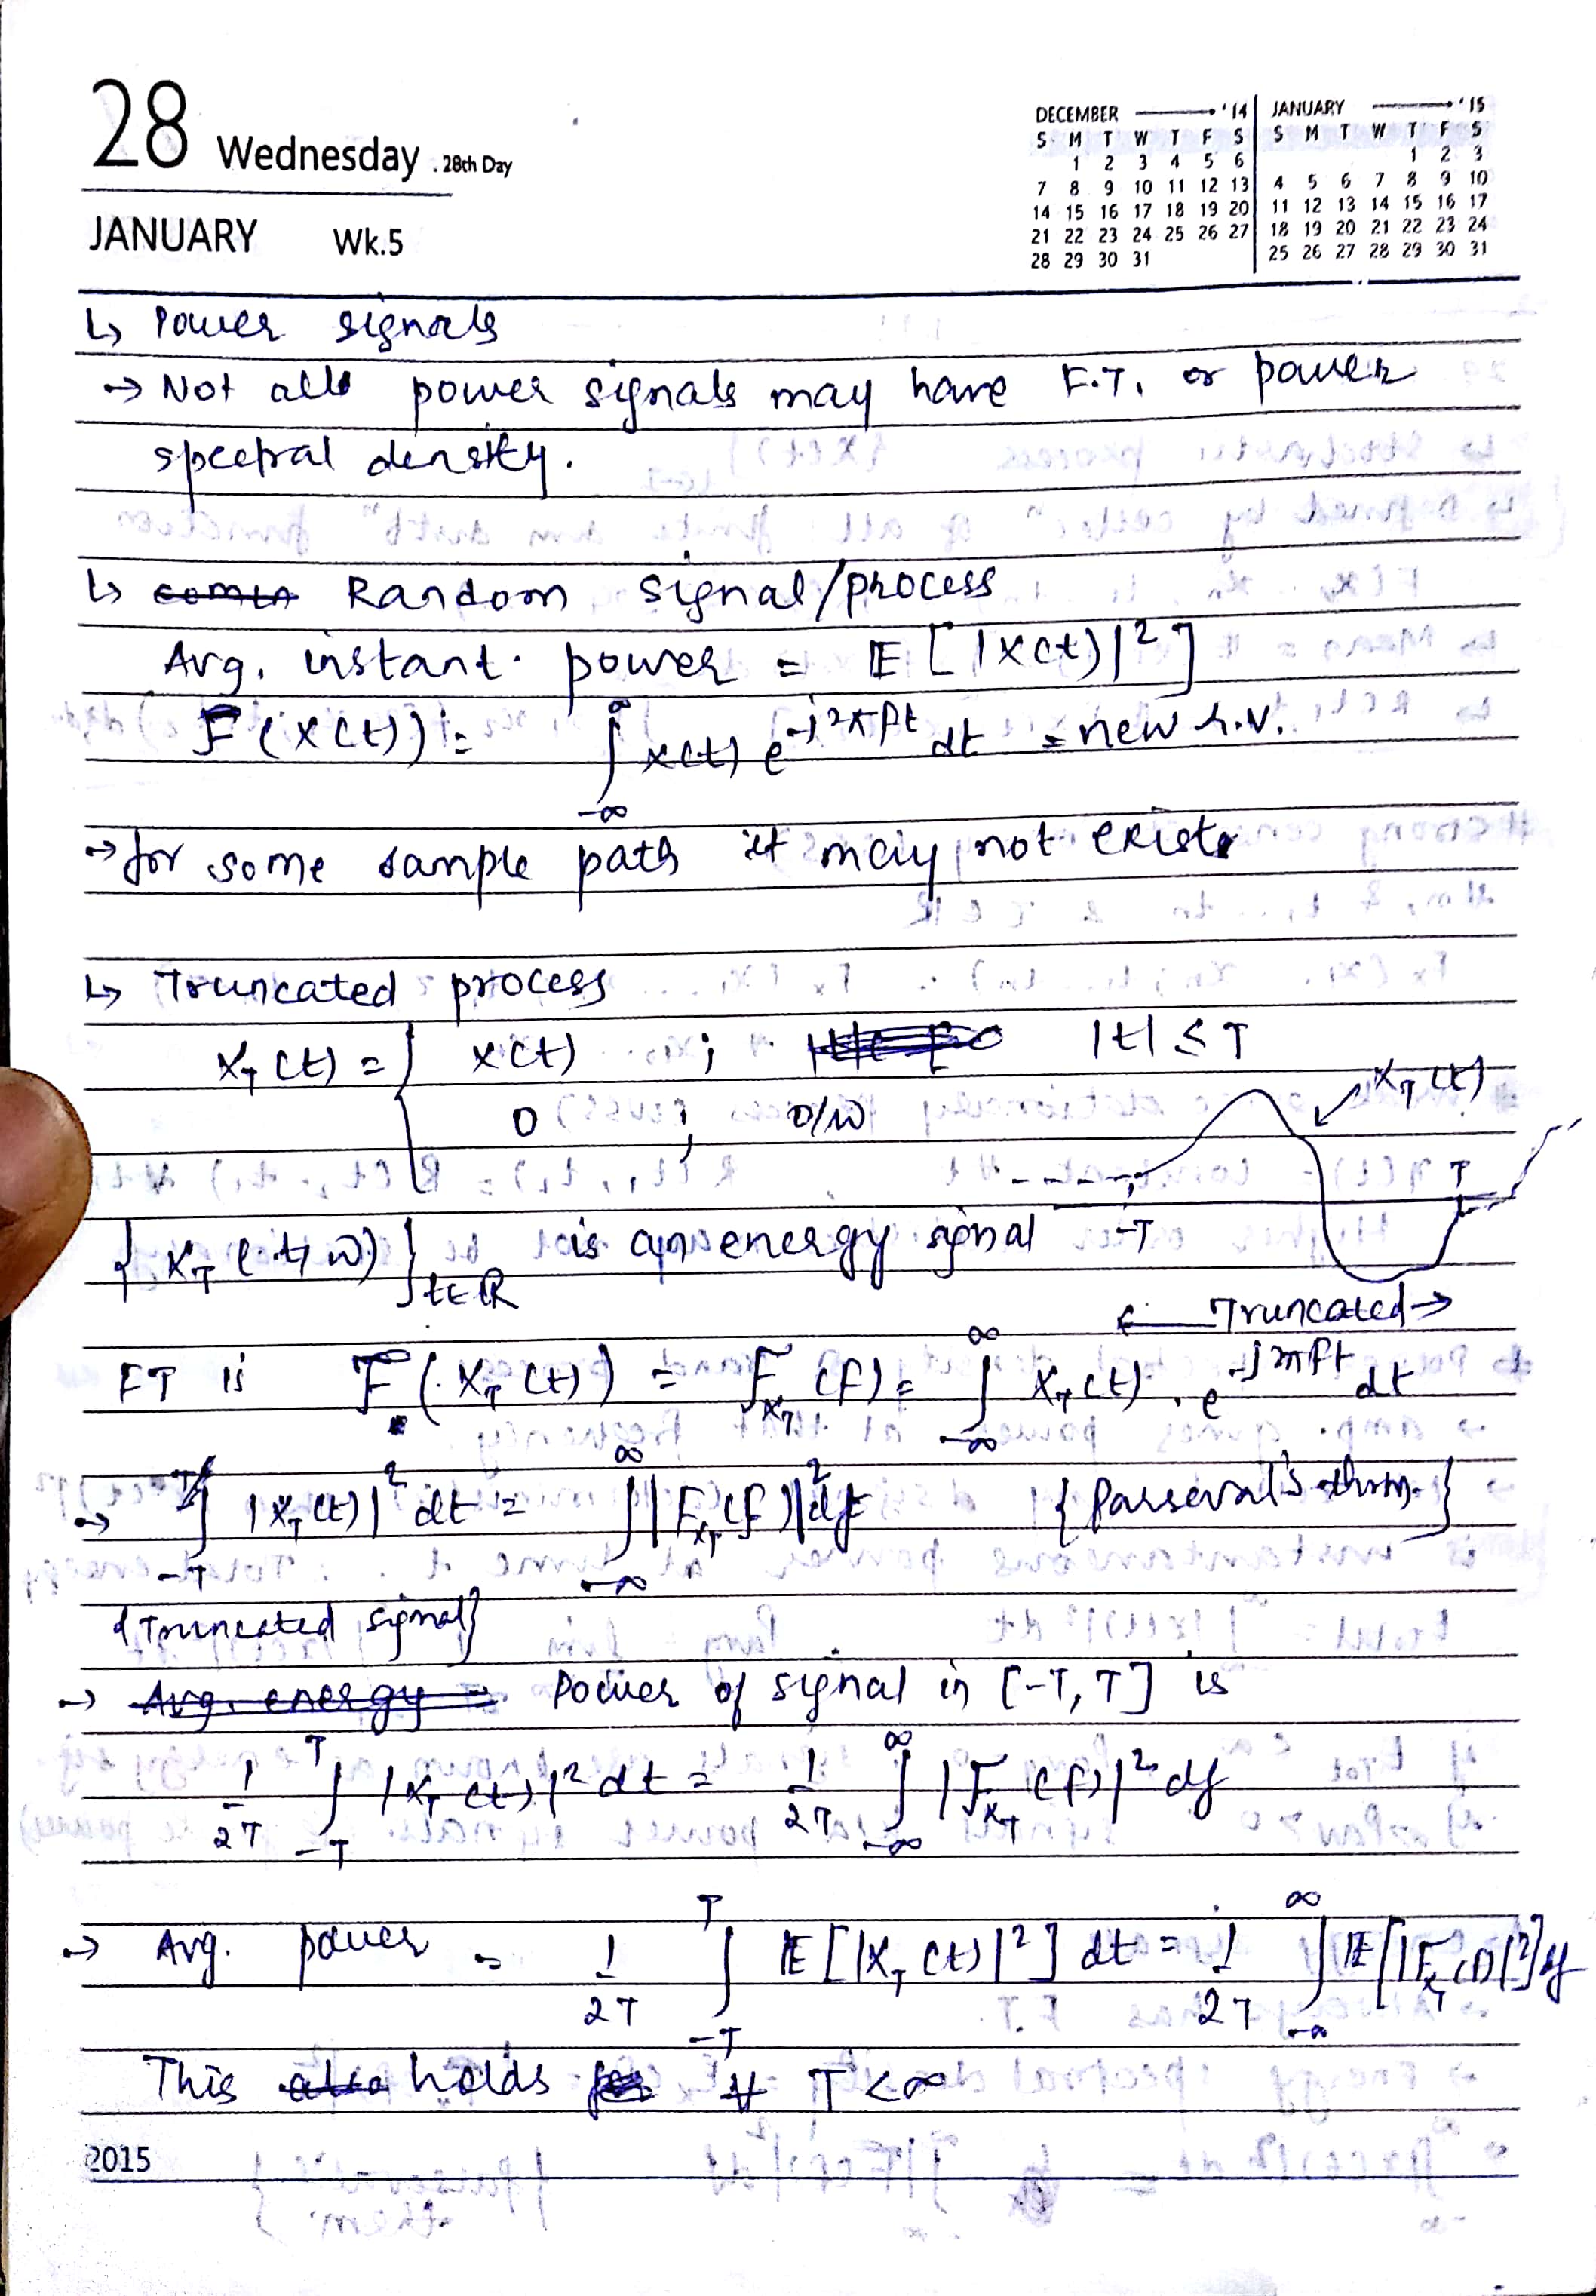 28 Wednesday . 28th Day
JANUARY Wk.5
DECEMBER → '14
S M T W T F S
1 2 3 4 5 6
7 8 9 10 11 12 13
14 15 16 17 18 19 20
21 22 23 24 25 26 27
28 29 30 31
JANUARY → '15
S M T W T F S
1 2 3
4 5 6 7 8 9 10
11 12 13 14 15 16 17
18 19 20 21 22 23 24
25 26 27 28 29 30 31
↳ Power signals
→ Not all power signals may have F.T. or power
spectral density.
↳ Random signal/process
Avg. instant. power = 𝔼[|X(t)|²]
F(X(t)) = ∫_{-∞}^{∞} x(t) e^{-j2πft} dt = new r.v.
→ for some sample path it may not exist
↳ Truncated process
X_T(t) = { X(t) ; |t| ≤ T
0 ; o/w
X_T(t)
-T T
{X_T(t,ω)}_{t∈ℝ} is an energy signal
← Truncated →
FT is F(X_T(t)) = F_{X_T}(f) = ∫_{-∞}^{∞} X_T(t) . e^{-j2πft} dt
→ ∫_{-T}^{T} |X_T(t)|² dt = ∫_{-∞}^{∞} |F_{X_T}(f)|² df {Parseval's thm.}
{Truncated signal}
→ Avg. energy = Power of signal in [-T, T] is
1/2T ∫_{-T}^{T} |X_T(t)|² dt = 1/2T ∫_{-∞}^{∞} |F_{X_T}(f)|² df
→ Avg. power = 1/2T ∫_{-T}^{T} 𝔼[|X_T(t)|²] dt = 1/2T ∫_{-∞}^{∞} 𝔼[|F_{X_T}(f)|²] df
This also holds ∀ T < ∞
2015